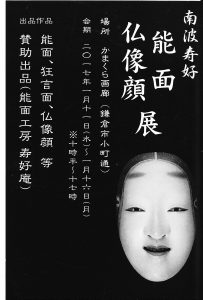 南波寿好
能面
仏像顔 展
場所 かまくら画廊（鎌倉市小町通）
会期 二〇一七年一月十一日(水)～一月十六日(月)
※十時半～十七時
出品作品
能面、狂言面、仏像顔 等
賛助出品（能面工房 寿好庵）